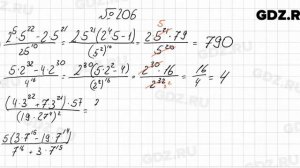 №206
GDZ.RU
(2⁵5²² - 2·5²¹)/25¹⁰ = 2·5²¹(2⁴5-1)/(5²)¹⁰ = 2·5²¹·79/5²⁰ = 790
(5·2³² - 4·2³⁰)/4¹⁶ = 2³⁰(5·2²-4)/(2²)¹⁶ = 2³⁰·16/2³² = 16/4 = 4
(4·3²² + 7·3²¹)·57/(19·27⁴)² =
5(3·7¹⁵ - 19·7¹⁴)/7¹⁶ + 3·7¹⁵ =
GDZ.RU